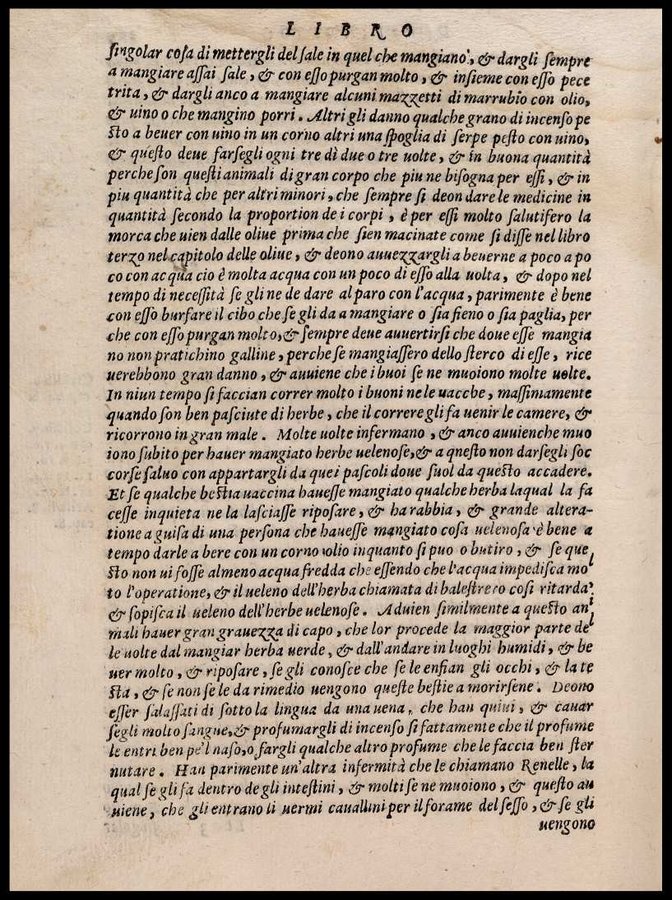 LIBRO
singolar cosa di mettergli del sale in quel che mangiano, & dargli sempre
a mangiare assai sale, & con esso purgan molto, & insieme con esso pece
trita, & dargli anco a mangiare alcuni mazzetti di marrubio con olio,
& uino o che mangino porri. Altri gli danno qualche grano di incenso pe
sto a beuer con uino in un corno altri una spoglia di serpe pesto con uino,
& questo deue farsegli ogni tre dì due o tre uolte, & in buona quantità
perche son questi animali di gran corpo che piu ne bisogna per essi, & in
piu quantità che per altri minori, che sempre si deon dare le medicine in
quantità secondo la proportion de i corpi, è per essi molto salutifero la
morca che uien dalle oliue prima che sien macinate come si disse nel libro
terzo nel capitolo delle oliue, & deono auuezzargli a beuerne a poco a po
co con acqua cio è molta acqua con un poco di esso alla uolta, & dopo nel
tempo di necessità se gli ne de dare al paro con l'acqua, parimente è bene
con esso burfare il cibo che se gli da a mangiare o sia fieno o sia paglia, per
che con esso purgan molto, & sempre deue auuertirsi che doue esse mangia
no non pratichino galline, perche se mangiassero dello sterco di esse, rice
uerebbono gran danno, & auuiene che i buoi se ne muoiono molte uolte.
In niun tempo si faccian correr molto i buoni ne le uacche, massimamente
quando son ben pasciute di herbe, che il correre gli fa uenir le camere, &
ricorrono in gran male. Molte uolte infermano, & anco auuienche muo
iono subito per hauer mangiato herbe uelenose, & a qnesto non darsegli soc
corse saluo con appartargli da quei pascoli doue suol da questo accadere.
Et se qualche bestia uaccina hauesse mangiato qualche herba laqual la fa
cesse inquieta ne la lasciasse riposare, & ha rabbia, & grande altera-
tione a guisa di una persona che hauesse mangiato cosa uelenosa è bene a
tempo darle a bere con un corno olio inquanto si puo o butiro, & se que
sto non ui fosse almeno acqua fredda che essendo che l'acqua impedisca mo
to l'operatione, & il ueleno dell'herba chiamata di balestrero cosi ritarda
& sopisca il ueleno dell'herbe uelenose. Aduien similmente a questo ani
mali hauer gran grauezza di capo, che lor procede la maggior parte del
le uolte dal mangiar herba uerde, & dall'andare in luoghi humidi, & be
uer molto, & riposare, se gli conosce che se le enfian gli occhi, & la te
sta, & se non se le da rimedio uengono queste bestie a morirsene. Deono
esser salassati di sotto la lingua da una uena, che han quiui, & cauar
segli molto sangue, & profumargli di incenso si fattamente che il profume
le entri ben pe'l naso, o fargli qualche altro profume che le faccia ben ster
nutare. Han parimente un'altra infermità che le chiamano Renelle, la
qual se gli fa dentro de gli intestini, & molti se ne muoiono, & questo au
uiene, che gli entrano li uermi cauallini per il forame del sesso, & se gli
uengono